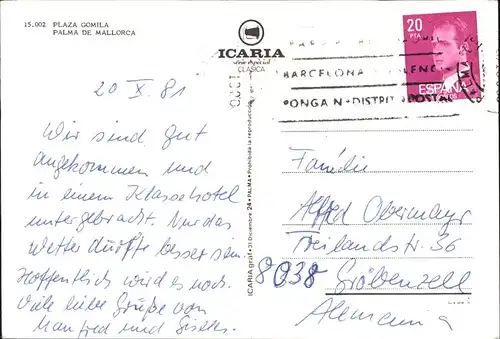 15.002 PLAZA GOMILA
PALMA DE MALLORCA
20 X. 81
Wir sind gut
angekommen und
in einem Klassehotel
untergebracht. Nur das
Wetter dürfte besser sein
Hoffentlich wird es noch.
Viele liebe Grüße von
Manfred und Gisela.
ICARIA
CLASICA
ICARIA graf. • 31 Diciembre, 24 • PALMA • Prohibida la reproducción
20
PTA
ESPAÑA
CORREOS
BARCELONA
PONGA Nº DISTRITO POSTAL
PALMA
Familie
Alfred Obermayr
Freilandstr. 36
8038 Gröbenzell
Alemania